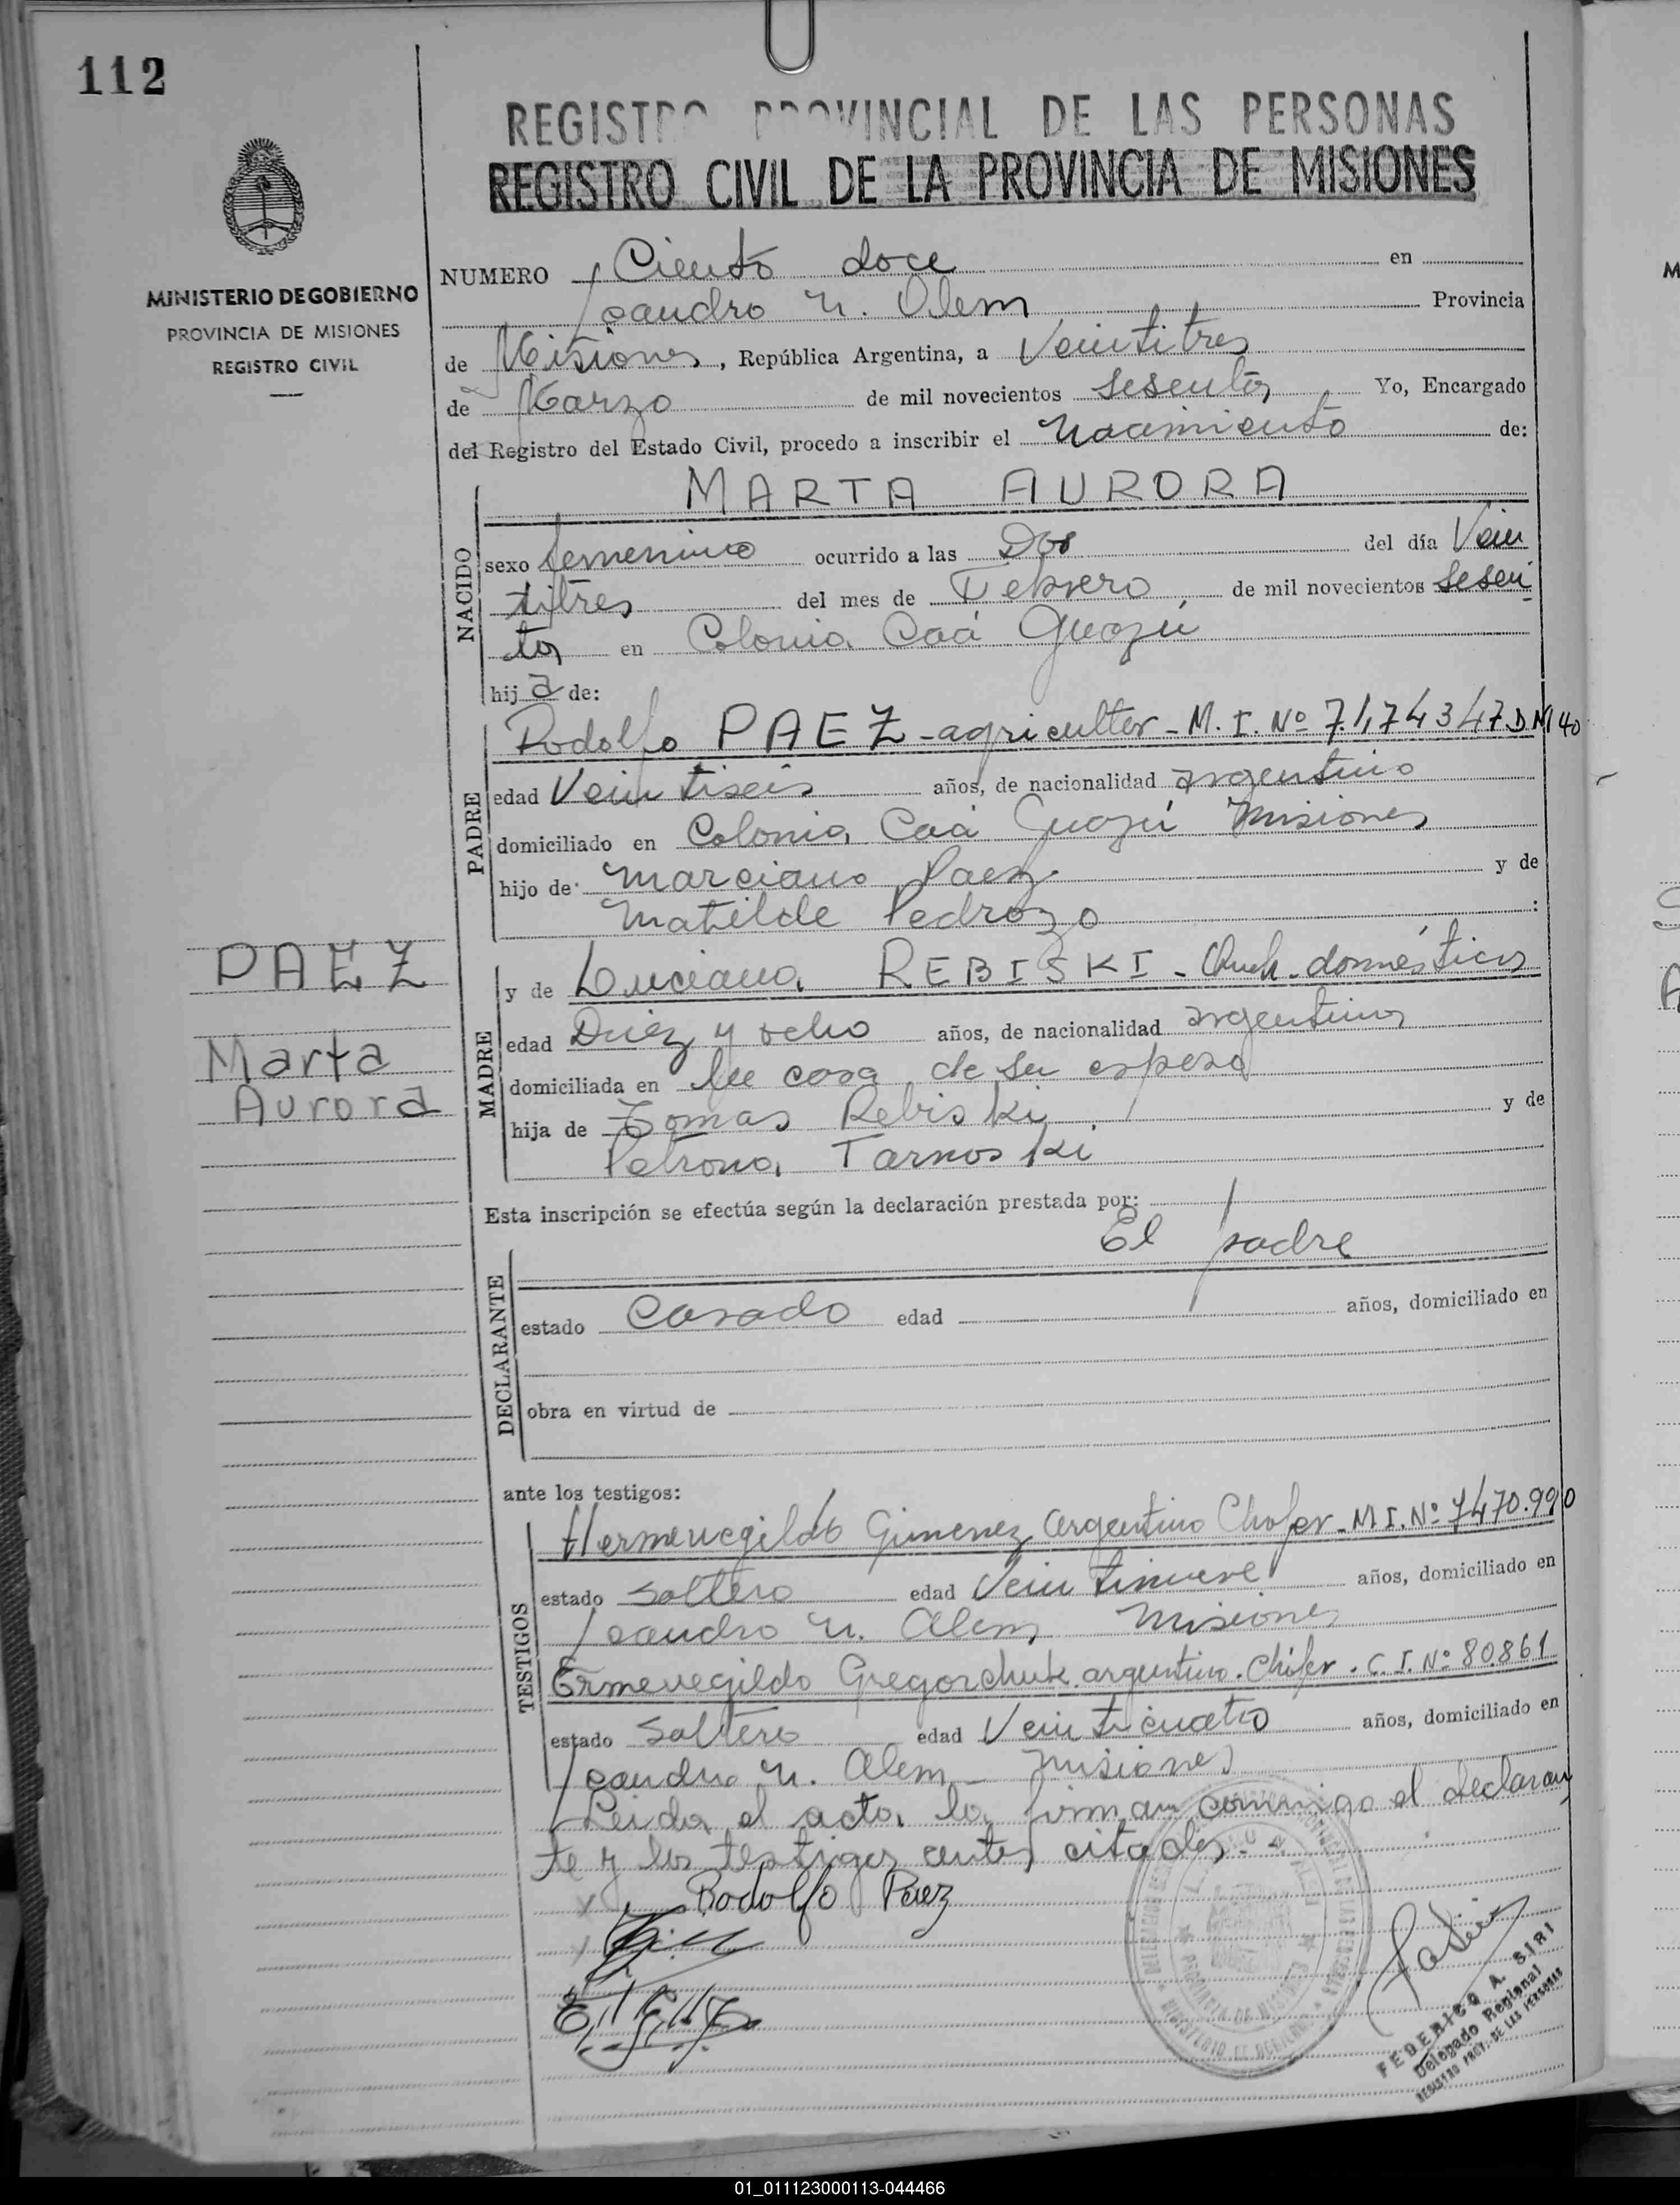 112
REGISTRO PROVINCIAL DE LAS PERSONAS
REGISTRO CIVIL DE LA PROVINCIA DE MISIONES
MINISTERIO DE GOBIERNO
PROVINCIA DE MISIONES
REGISTRO CIVIL
NUMERO Ciento doce en
Leandro N. Alem Provincia
de Misiones, República Argentina, a Veintitres
de Marzo de mil novecientos sesenta, Yo, Encargado
del Registro del Estado Civil, procedo a inscribir el Nacimiento de:
NACIDO
MARTA AURORA
sexo femenino ocurrido a las Dos del día Vein
titres del mes de Febrero de mil novecientos sesen
ta en Colonia Caá Guazú
hija de:
PADRE
Rodolfo PAEZ - agricultor - M. I. Nº 7174347 DM 40
edad Veintiseis años, de nacionalidad argentino
domiciliado en Colonia Caá Guazú Misiones
hijo de Marciano Paez y de
Matilde Pedrozo :
PAEZ
Marta
Aurora
MADRE
y de Luciana REBISKI - Queh. domésticos
edad Diez y ocho años, de nacionalidad argentina
domiciliada en la casa de su esposo
hija de Tomas Rebiski y de
Petrona Tarnoski
Esta inscripción se efectúa según la declaración prestada por:
El padre
DECLARANTE
estado Casado edad años, domiciliado en
obra en virtud de
ante los testigos:
TESTIGOS
Hermenegildo Gimenez argentino Chofer - M I. Nº 7470.990
estado soltero edad Veintinueve años, domiciliado en
Leandro N. Alem Misiones
Ermenegildo Gregorchuk argentino. Chofer. C. I. Nº 80861
estado soltero edad Veinticuatro años, domiciliado en
Leandro N. Alem - Misiones
Leida el acta, la firman conmigo el declaran
te y los testigos antes citados.
Rodolfo Paez
FEDERICO A. SIRI
Delegado Regional
REGISTRO PROV. DE LAS PERSONAS
01_011123000113-044466